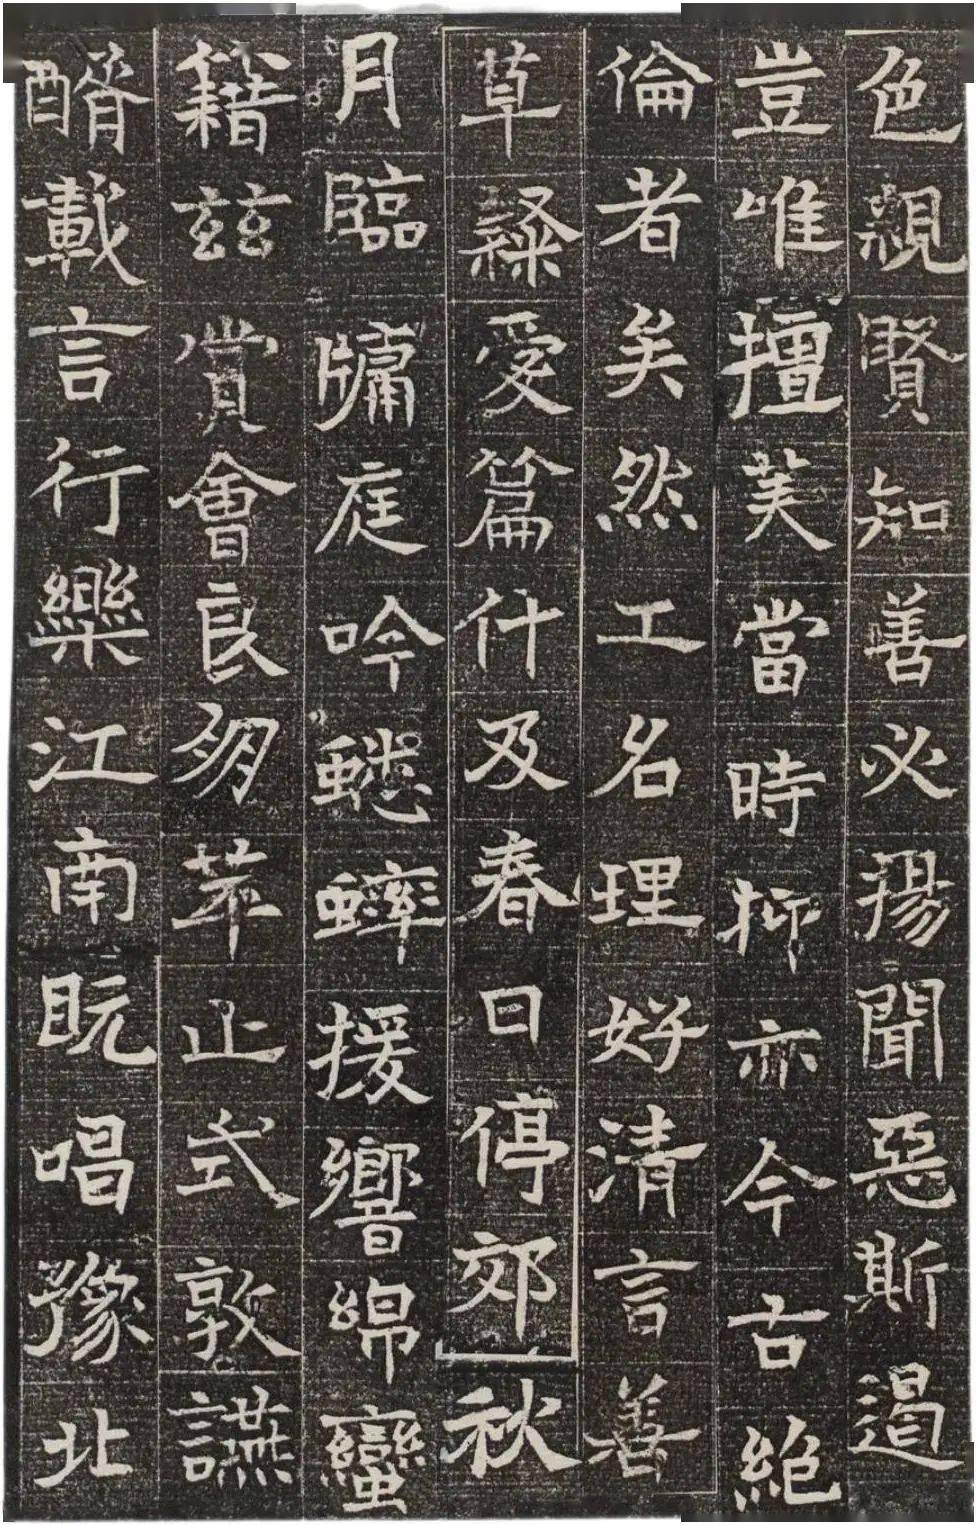 色親賢知善必揚聞惡斯遏
豈唯擅美當時抑亦今古絕
倫者矣然工名理好清言善
草隸愛篇什及春日停郊秋
月臨牖庭吟蟋蟀援響綿蠻
籍茲賞會良朋萃止式敦讌
醑載言行樂江南既唱豫北